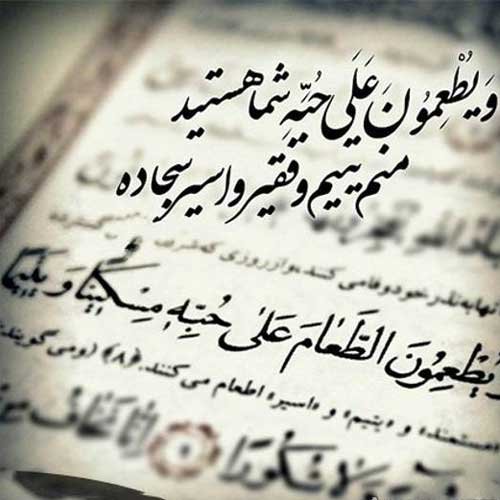 وَیُطْعِمُونَ عَلَی حُبِّهِ شما هستید
منم یتیم و فقیر و اسیر سجاده
به نذر خود وفا می کنند، و از روزی که
یُطْعِمُونَ الطَّعَامَ عَلَىٰ حُبِّهِ مِسْكِينًا وَ يَتِيمًا
«مستمند» و «یتیم» و «اسیر» اطعام می کنند. (۸) (و می گویند:
شُكُورًا ۹ إِنَّا نَخَافُ